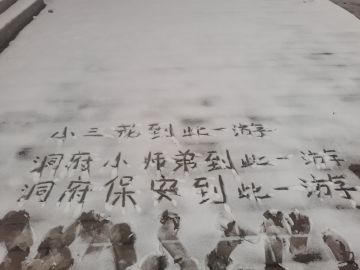 小三花到此一游
洞府小师弟到此一游
洞府保安到此一游